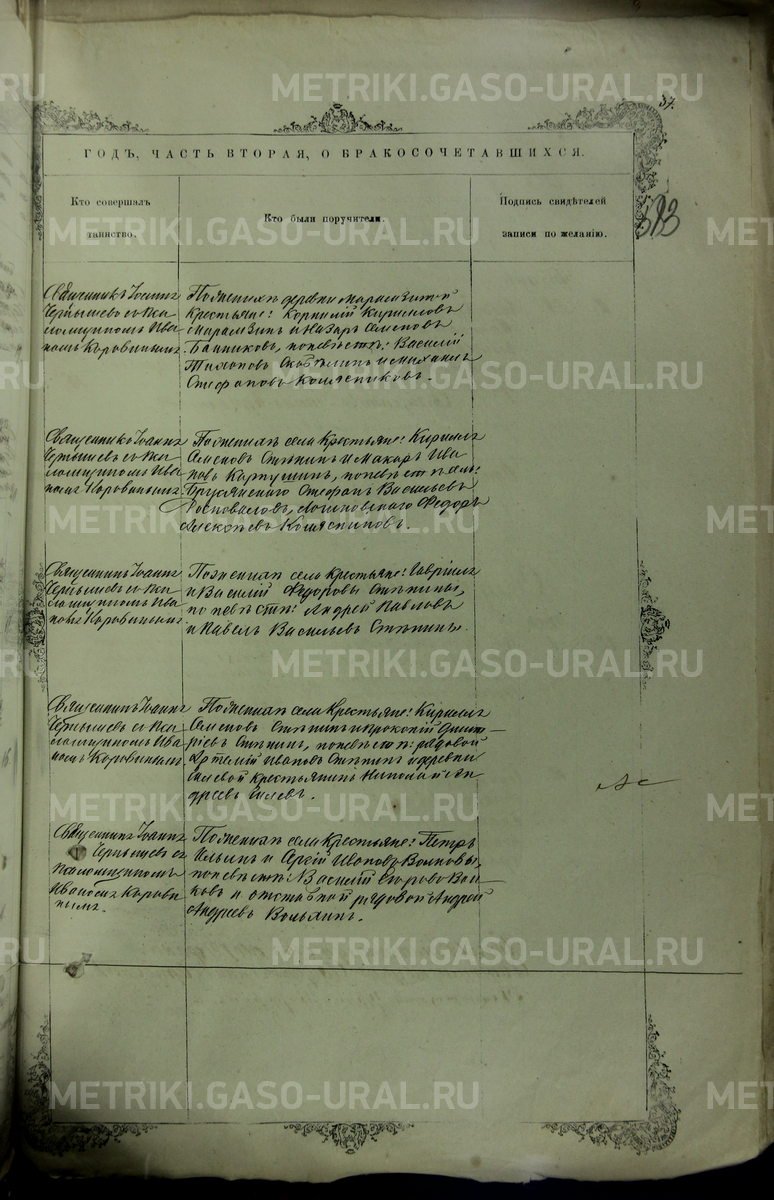 37.
593
ГОДЪ, ЧАСТЬ ВТОРАЯ, О БРАКОСОЧЕТАВШИХСЯ.
Кто совершалъ
таинство.
Кто были поручители.
Подпись свидѣтелей
записи по желанію.
Священникъ Іоаннъ
Чернышевъ съ пса
ломщикомъ Ива
номъ Коровинымъ.
По женихѣ деревни
крестьяне: Корнилій Кирилловъ
и Назаръ Семеновъ
Банниковъ, по невѣстѣ: Василій
Тихоновъ и Михаилъ
Стефановъ Колясниковъ.
Священникъ Іоаннъ
Чернышевъ съ пса
ломщикомъ Ива
номъ Коровинымъ
По женихѣ села крестьяне: Кириллъ
Семеновъ Стѣнинъ и Макаръ Ива
новъ Карпушинъ, по невѣстѣ селъ:
Бруснянскаго Стефанъ Васильевъ
Логиновскаго Федоръ
Алексѣевъ Колясниковъ.
Священникъ Іоаннъ
Чернышевъ съ пса
ломщикомъ Ива
номъ Коровинымъ
По женихѣ села крестьяне: Гавріилъ
и Василій Федоровы Стѣнины,
по невѣстѣ: Андрей Павловъ
и Павелъ Васильевъ Стѣнины.
Священникъ Іоаннъ
Чернышевъ съ пса
ломщикомъ Ива
номъ Коровинымъ
По женихѣ села крестьяне: Кириллъ
Семеновъ Стѣнинъ и Прокопій Димит
ріевъ Стѣнинъ, по невѣстѣ: рядовой
Артемій Ивановъ Стѣнинъ и деревни
крестьянинъ Николай Ан
дреевъ
Священникъ Іоаннъ
Чернышевъ съ
псаломщикомъ
Иваномъ Корови
нымъ.
По женихѣ села крестьяне: Петръ
Ильинъ и Сергій Ивановъ Волковы,
по невѣстѣ: Василій Егоровъ Вол
ковъ и отставной рядовой Андрей
Андреевъ
METRIKI.GASO-URAL.RU